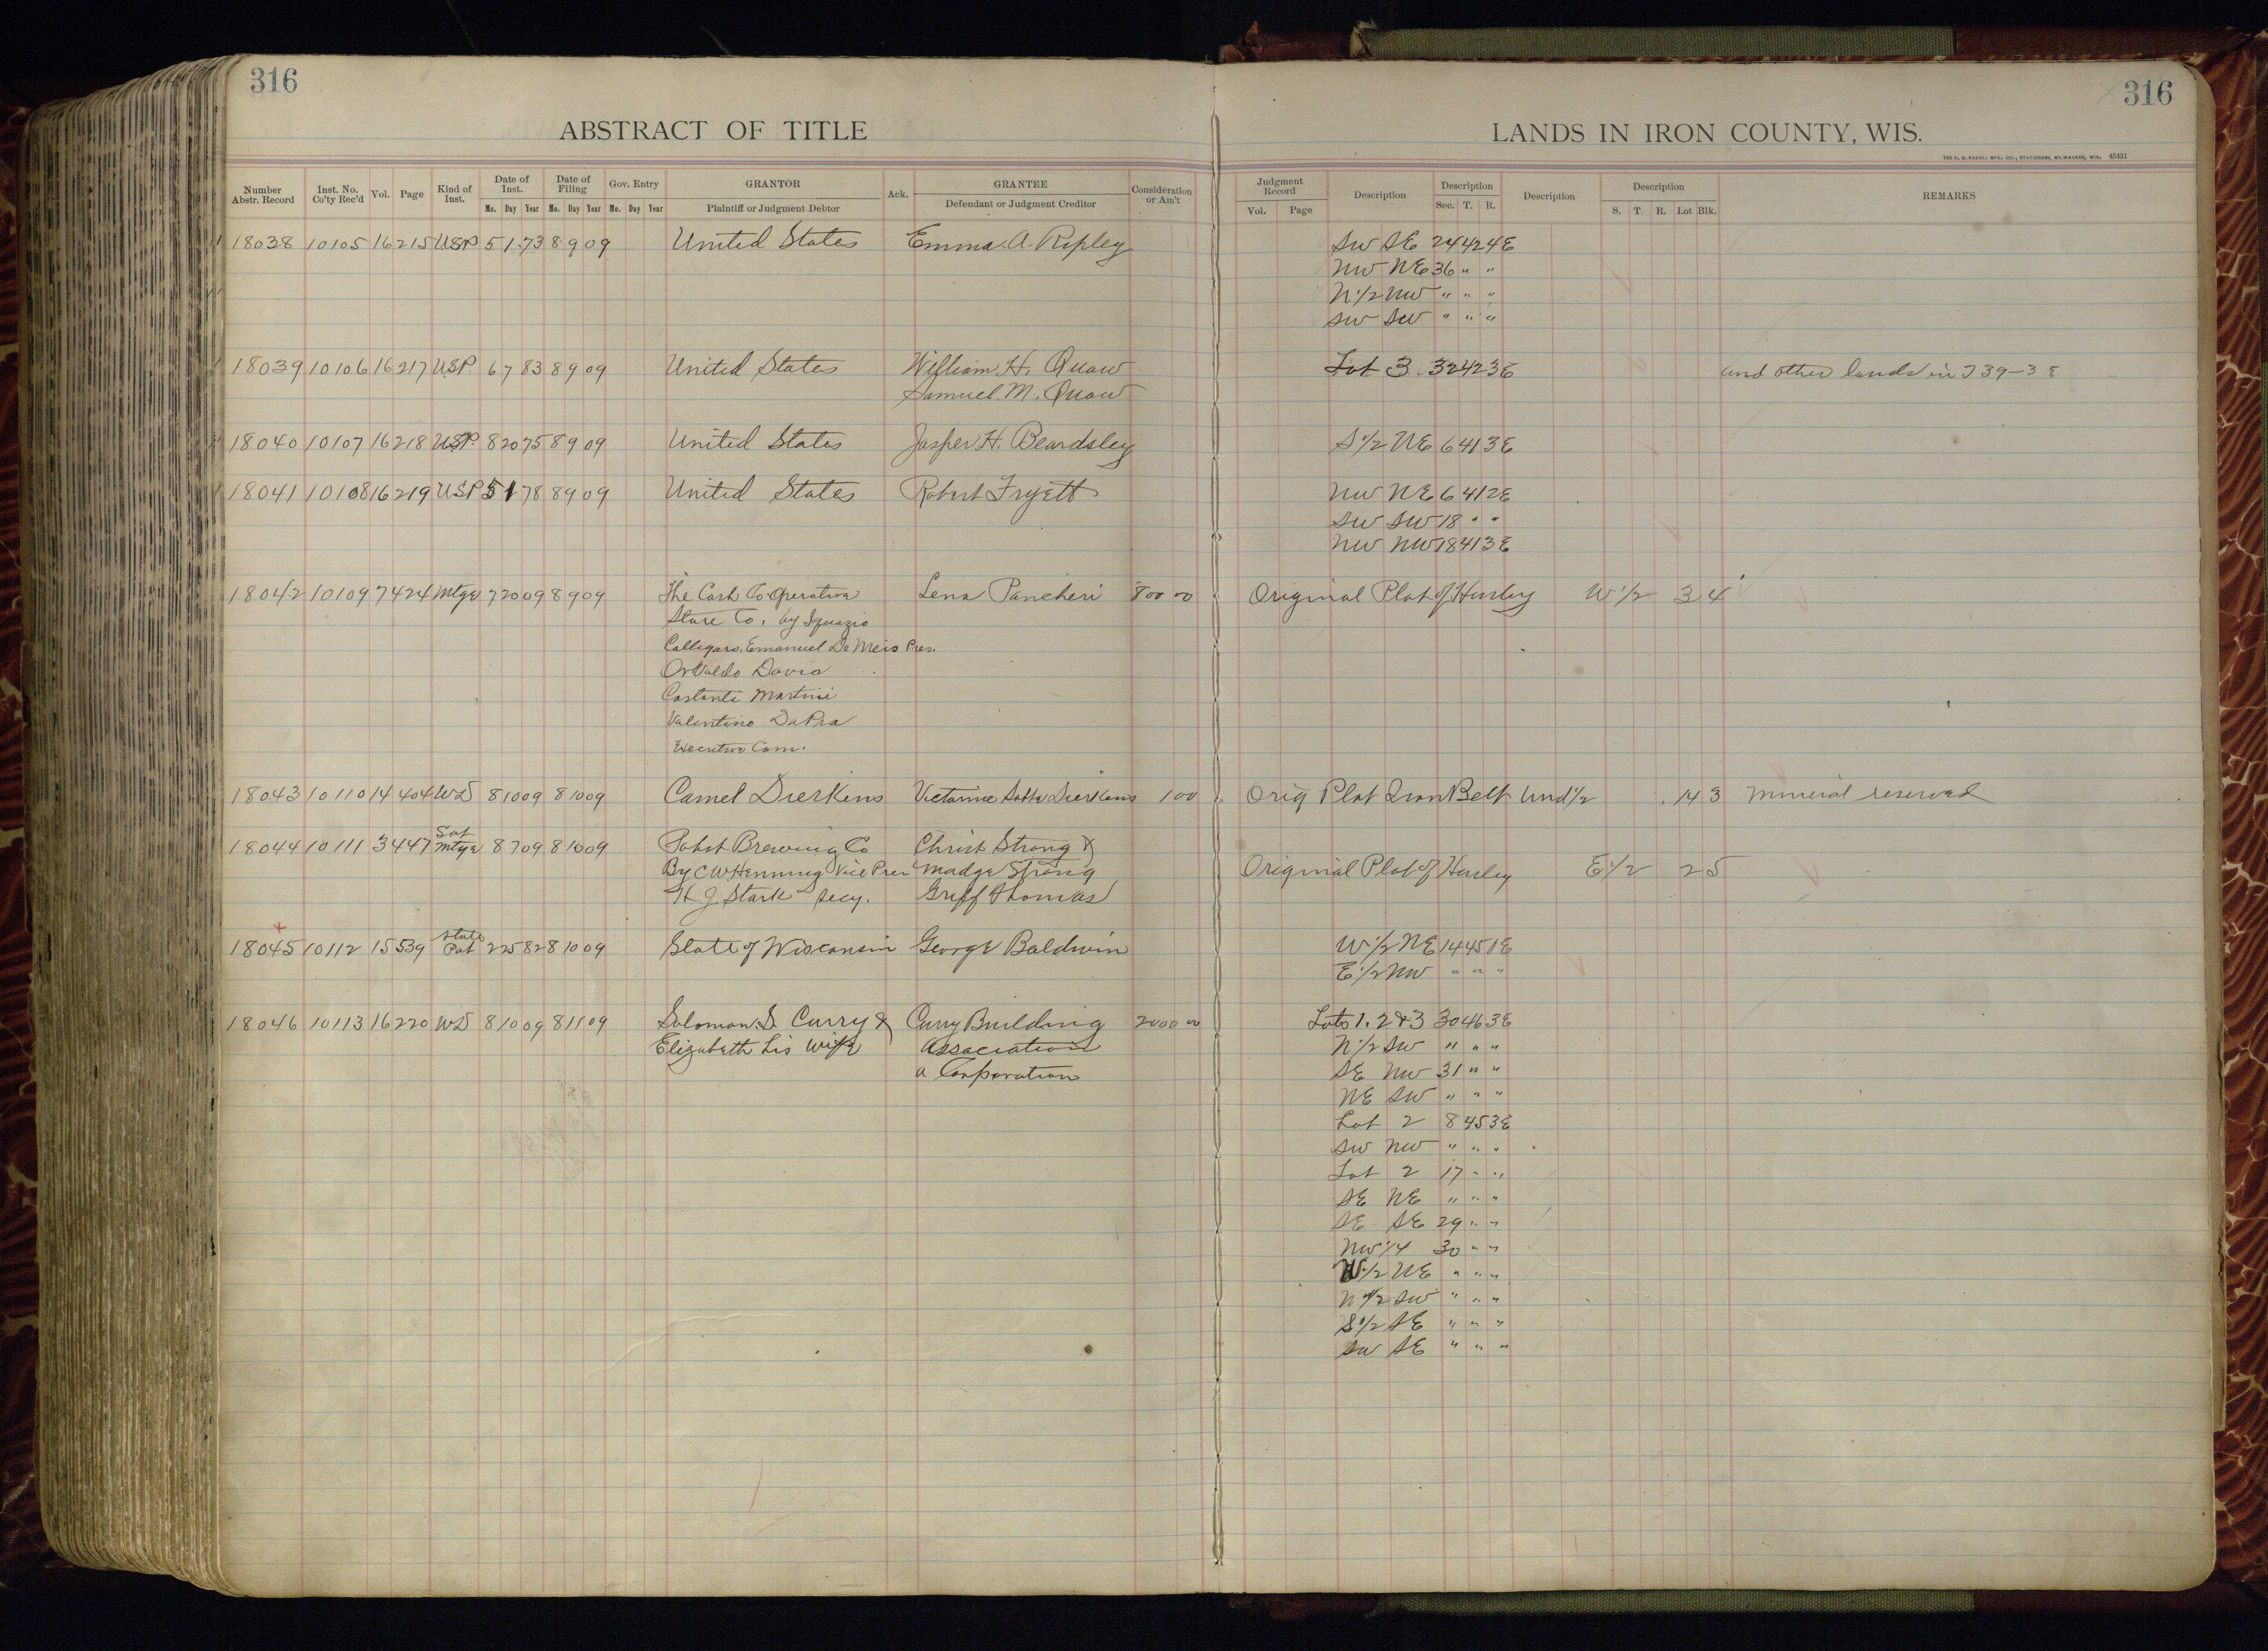 316
316
ABSTRACT OF TITLE
LANDS IN IRON COUNTY, WIS.
THE H. G. RAZALL MFG. CO., STATIONERS, MILWAUKEE, WIS. 45431
Number Abstr. Record Inst. No. Co'ty Rec'd Vol. Page Kind of Inst. Date of Inst. Mo. Day Year Date of Filing Mo. Day Year Gov. Entry Mo. Day Year GRANTOR Plaintiff or Judgment Debtor Ack. GRANTEE Defendant or Judgment Creditor Consideration or Am't
Judgment Record Vol. Page Description Description Sec. T. R. Description Description S. T. R. Lot Blk. REMARKS
18038 10105 16 215 USP 5 1 73 8 9 09 United States Emma A. Ripley SW SE 24 42 4E
NW NE 36 " "
N 1/2 NW " " "
SW SW " " "
18039 10106 16 217 USP. 6 7 83 8 9 09 United States William H. Quaw Lot 3 32 42 3E and other lands in T 39-3 E
Samuel M. Quaw
18040 10107 16 218 USP. 8 20 75 8 9 09 United States Jasper H. Beardsley S 1/2 NE 6 41 3E
18041 10108 16 219 USP 5 1 78 8 9 09 United States Robert Fryett NW NE 6 41 2E
SW SW 18 " "
NW NW 18 41 3E
18042 10109 7 424 Mtge 7 20 09 8 9 09 The Cash Co-Operative Lena Pancheri 800 00 Original Plat of Hurley W 1/2 3 4
Store Co. by Ignazio
Calligaro, Emanuel De Meio Pres.
Osvaldo David
Costante Martini
Valentino DaPra
Executive Com.
18043 10110 14 404 WD 8 10 09 8 10 09 Camel Dierkens Dierkens 1 00 Orig Plat Iron Belt Und 1/2 14 3 Mineral reserved
18044 10111 3 447 Sat Mtge 8 7 09 8 10 09 Pabst Brewing Co Christ Strong &
By C W Henning Vice Pres Madge Strong Original Plat of Hurley E 1/2 2 5
H J Stark Secy. Griff Thomas
18045 10112 15 539 State Pat 2 25 82 8 10 09 State of Wisconsin George Baldwin W 1/2 NE 14 45 1E
E 1/2 NW " " "
18046 10113 16 220 WD 8 10 09 8 11 09 Solomon S. Curry & Curry Building 2000 00 Lots 1, 2 & 3 30 46 3E
Elizabeth his wife Association N 1/2 SW " " "
a Corporation SE NW 31 " "
NE SW " " "
Lot 2 8 45 3E
SW NW " " "
Lot 2 17 " "
SE NE " " "
SE SE 29 " "
NW 1/4 30 " "
W 1/2 NE " " "
N 1/2 SW " " "
S 1/2 SE " " "
SW SE " " "